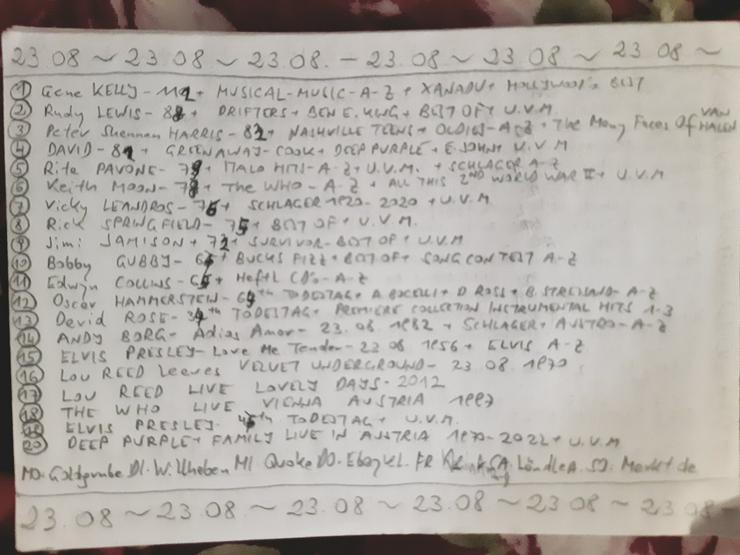 23.08 ~ 23.08 ~ 23.08. - 23.08 ~ 23.08 ~ 23.08 ~
① Gene KELLY - 112 + MUSICAL-MUSIC-A-Z + XANADU + HOLLYWOOD'S BEST
② Rudy LEWIS - 88 + DRIFTERS + BEN E. KING + BEST OF + U.V.M.
③ Peter Shennan HARRIS - 82 + NASHVILLE TEENS + OLDIES - A-Z + The Many Faces Of VAN HALEN
④ DAVID - 82 + GREENAWAY - COOK + DEEP PURPLE + E.JOHN + U.V.M
⑤ Rita PAVONE - 79 + ITALO HITS - A-Z + U.V.M. + SCHLAGER A-Z
⑥ Keith MOON - 78 + The WHO - A-Z + ALL THIS 2ND WORLD WAR II + U.V.M
⑦ Vicky LEANDROS - 76 + SCHLAGER 1920-2020 + U.V.M
⑧ Rick SPRINGFIELD - 75 + BEST OF + U.V.M.
⑨ Jimi JAMISON + 72 + SURVIVOR - BEST OF + U.V.M
⑩ Bobby GUBBY - + BUCKS FIZZ + BEST OF + SONG CONTEST A-Z
⑪ Edwyn COLLINS - + Heftl CD's - A-Z
⑫ Oscar HAMMERSTEIN - th TODESTAG + A BOCELLI + D ROSS + B. STREISAND - A-Z
⑬ David ROSE - th TODESTAG + PREMIERE COLLECTION INSTRUMENTAL HITS 1-3
⑭ ANDY BORG - Adios Amor - 23.08.1982 + SCHLAGER + AUSTRO - A-Z
⑮ ELVIS PRESLEY - Love Me Tender - 23 08 1956 + ELVIS A-Z
⑯ LOU REED Leaves VELVET UNDERGROUND - 23 08 1970
⑰ LOU REED LIVE LOVELY DAYS - 2012
⑱ THE WHO LIVE VIENNA AUSTRIA 1997
⑲ ELVIS PRESLEY - th TODESTAG + U.V.M.
⑳ DEEP PURPLE + FAMILY LIVE IN AUSTRIA 1970-2022 + U.V.M
MO: DI. W. MI Quoka DO. Ebay KL. FR SA Ländle A. SO: Markt de
23.08 ~ 23.08 ~ 23.08 ~ 23.08 ~ 23.08 ~ 23.08 ~